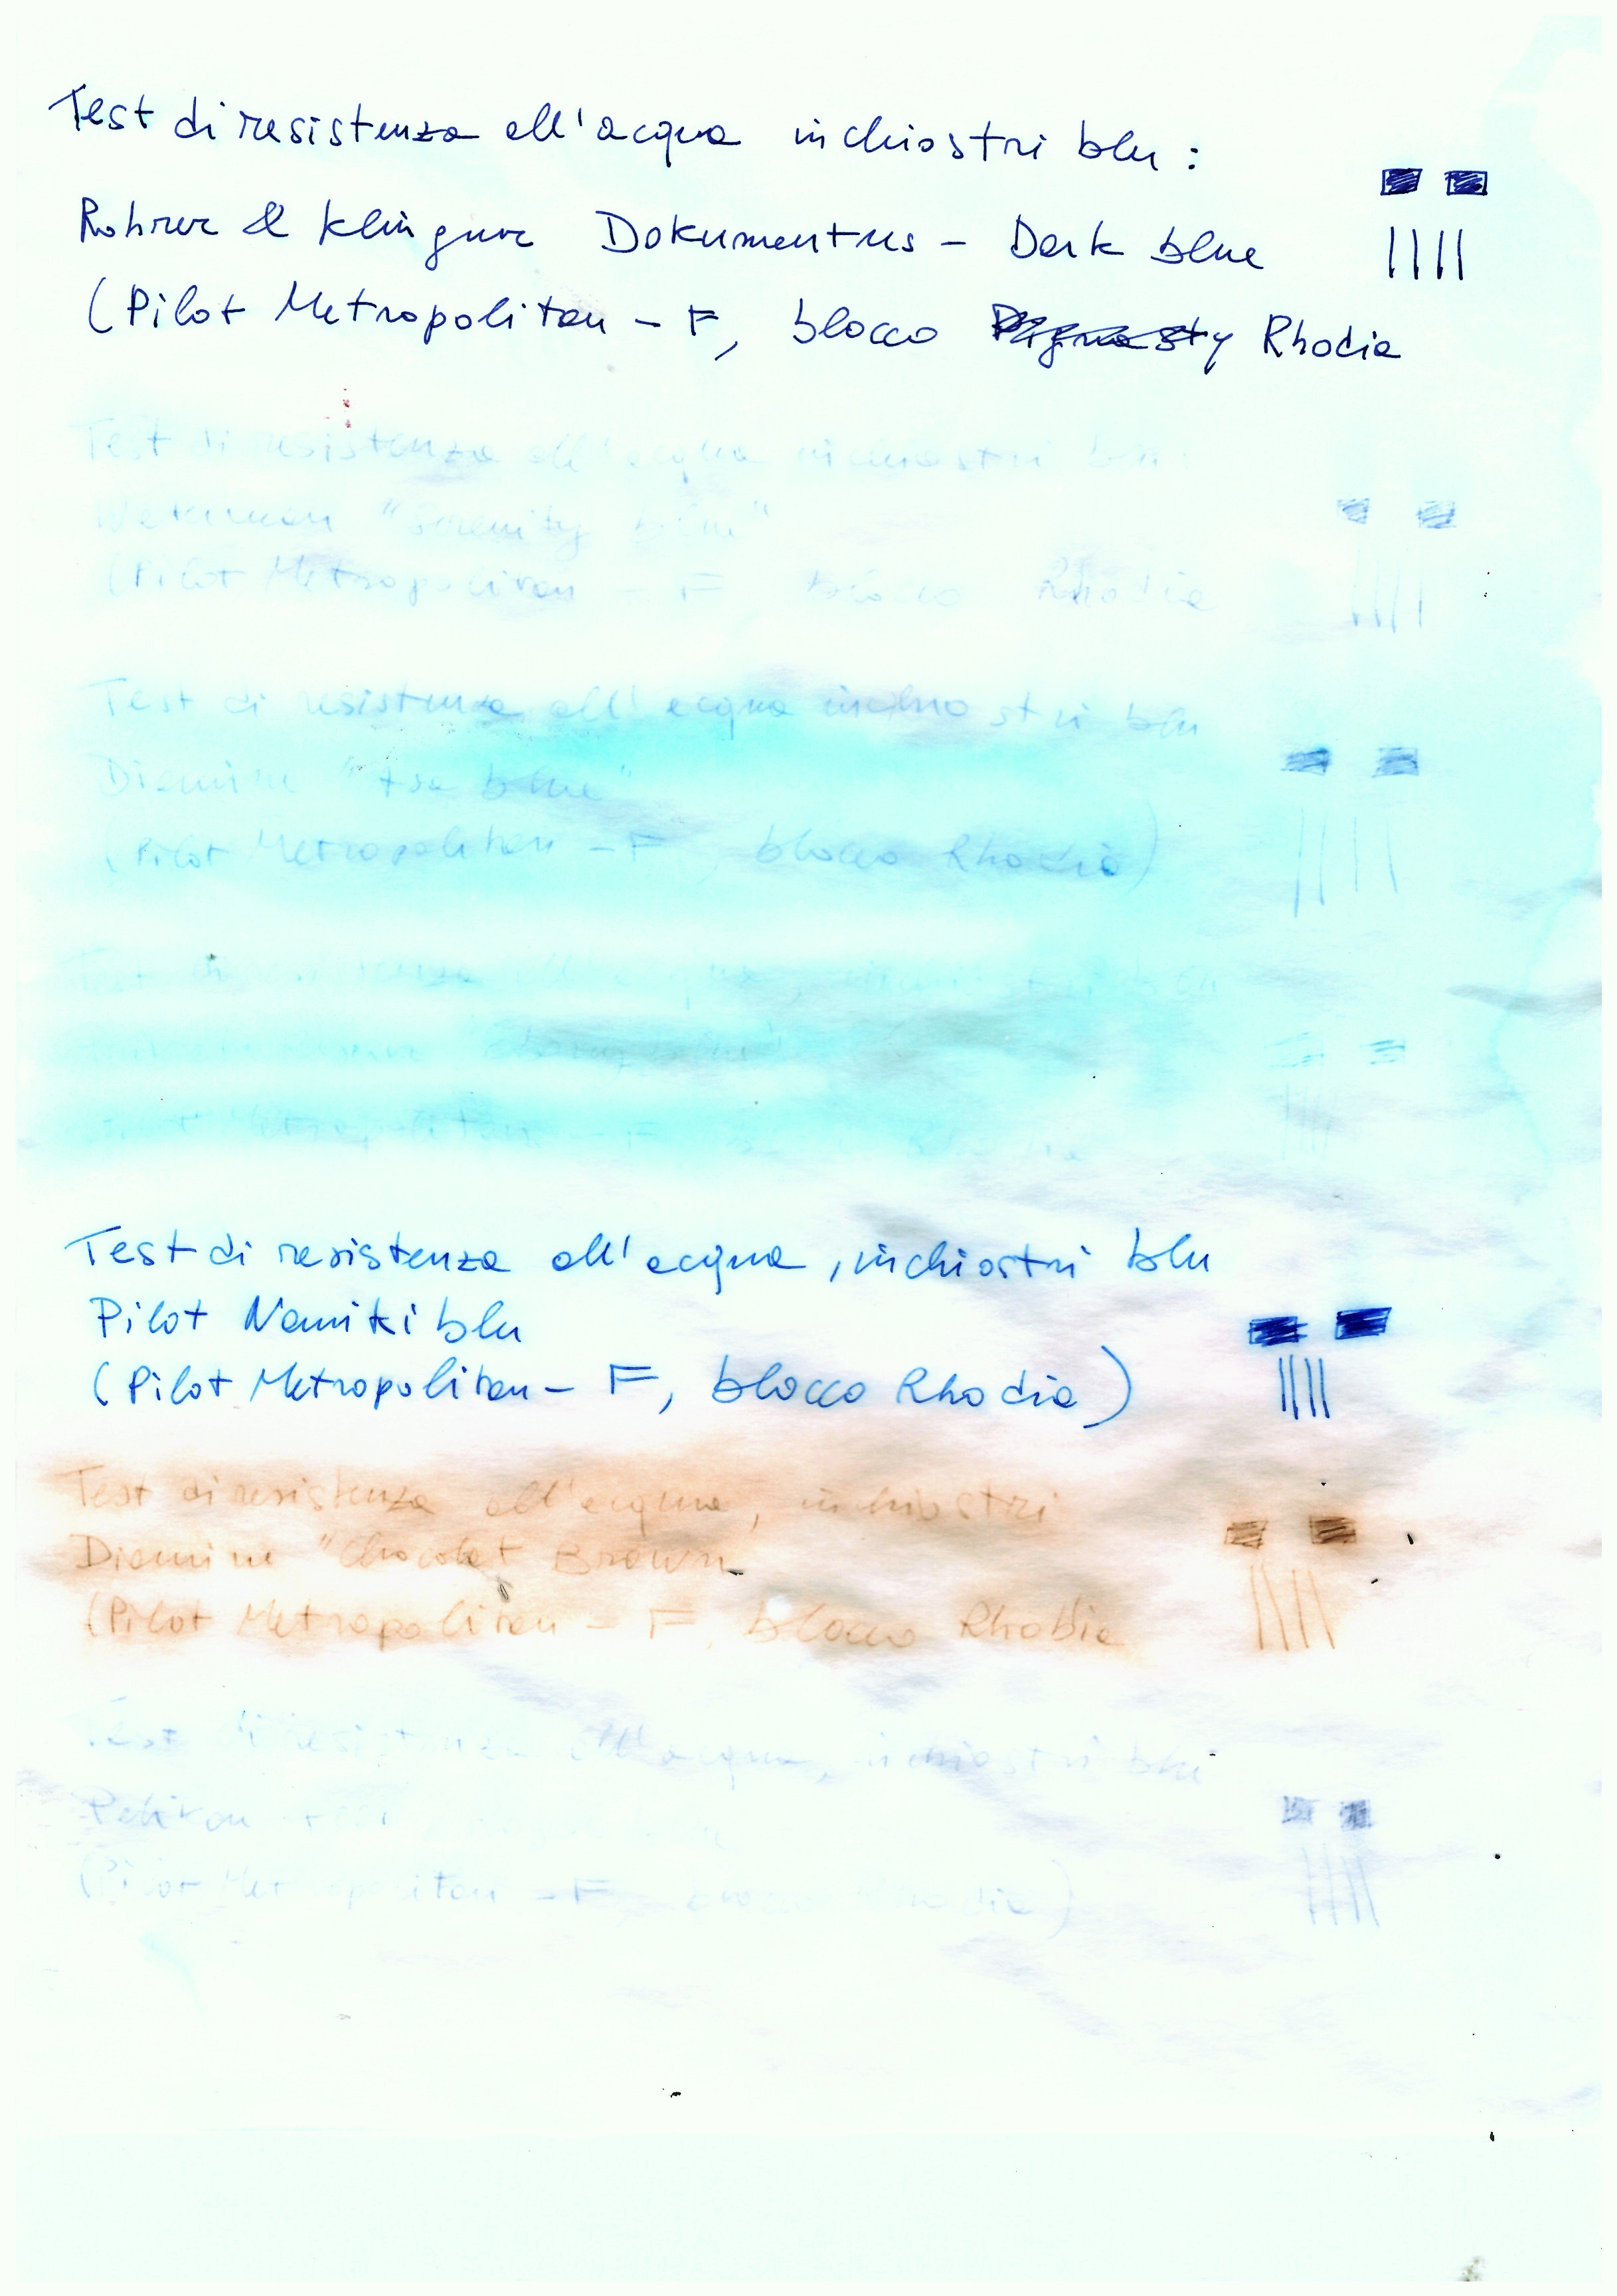 Test di resistenza all'acqua inchiostri blu:
Rohrer & Klingner Dokumentus - Dark blue
(Pilot Metropolitan - F, blocco Rhodia
Test di resistenza all'acqua inchiostri blu:
Waterman "Serenity blue"
(Pilot Metropolitan - F blocco Rhodia
Test di resistenza all'acqua inchiostri blu
Diamine blue"
(Pilot Metropolitan - F, blocco Rhodia)
Test di resistenza all'acqua, inchiostri blu
Pilot Metropolitan - F
Test di resistenza all'acqua, inchiostri blu
Pilot Namiki blu
(Pilot Metropolitan - F, blocco Rhodia)
Test di resistenza all'acqua, inchiostri
Diamine "Chocolat Brown
(Pilot Metropolitan - F, blocco Rhodia
Test di resistenza all'acqua, inchiostri blu
Pelikan
(Pilot Metropolitan - F blocco Rhodia)